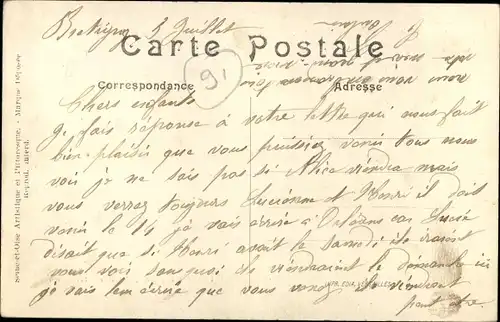 Bretigny 5 Juillet
Carte Postale
91
Correspondance
Adresse
Chers enfants
je fais réponse à votre lettre qui nous fait
bien plaisir que vous puissiez venir tous nous
voir je ne sais pas si Alice viendra mais
vous verrez toujours Lucienne et Henri il doit
venir le 14 je vais écrire à Orléans car Lucie
disait que si Henri avait le samedi ils iraient
vous voir sans quoi ils viendraient le dimanche ici
je vais leur écrire que vous venez ils viendront
peut être
Seine-et-Oise Artistique et Pittoresque. - Marque Déposée